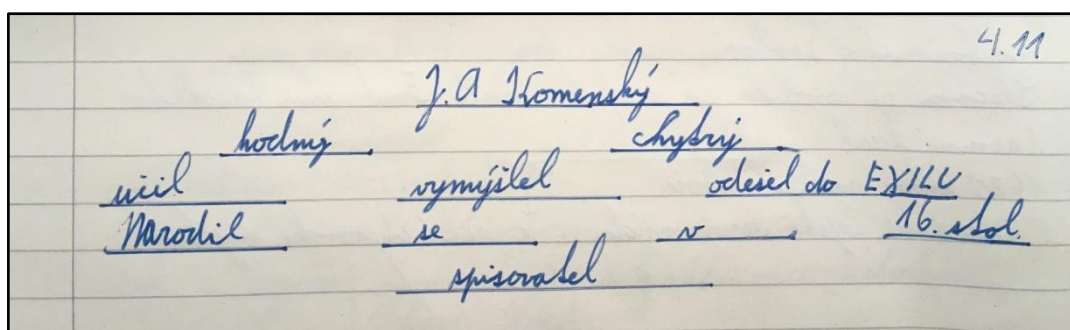 4.11
J.A Komenský
hodný chytrý
učil vymýšlel odešel do EXILU
Narodil se v 16. stol.
spisovatel